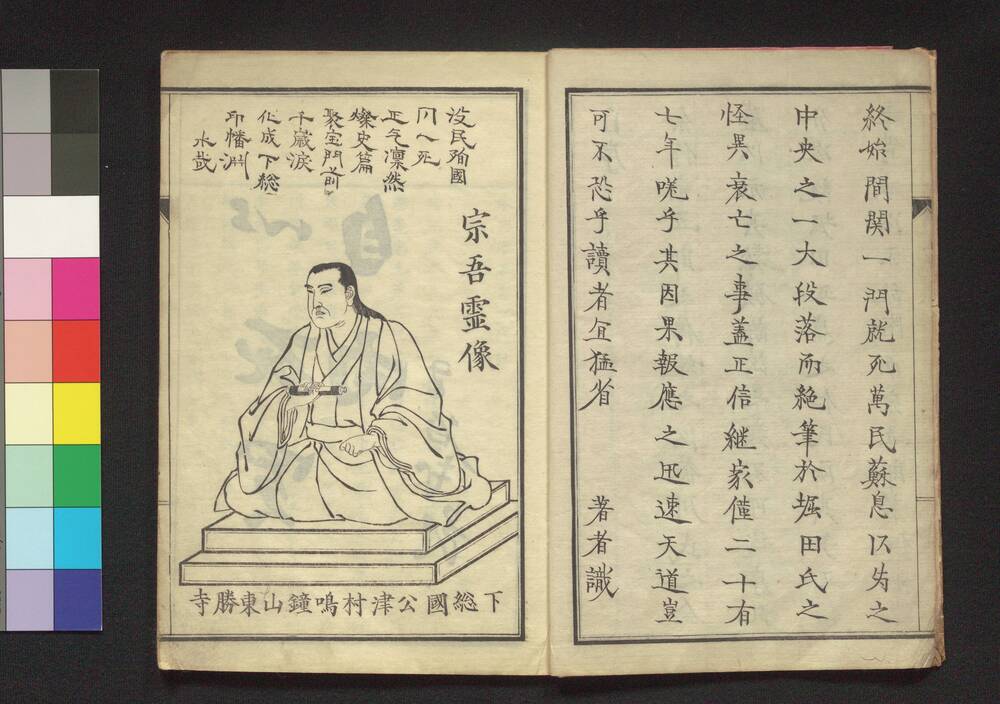 終始間関一門就死萬民蘇息以為之
中央之一大段落而絶筆於堀田氏之
怪異衰亡之事蓋正信継家僅二十有
七年嗟乎其因果報應之迅速天道豈
可不恐乎讀者宜猛省
著者識
没民殉國
死
正气凛然
燦史篇
聚宝門前
千歳涙
化成下総
印幡淵
水哉
宗吾霊像
下総國公津村鳴鐘山東勝寺